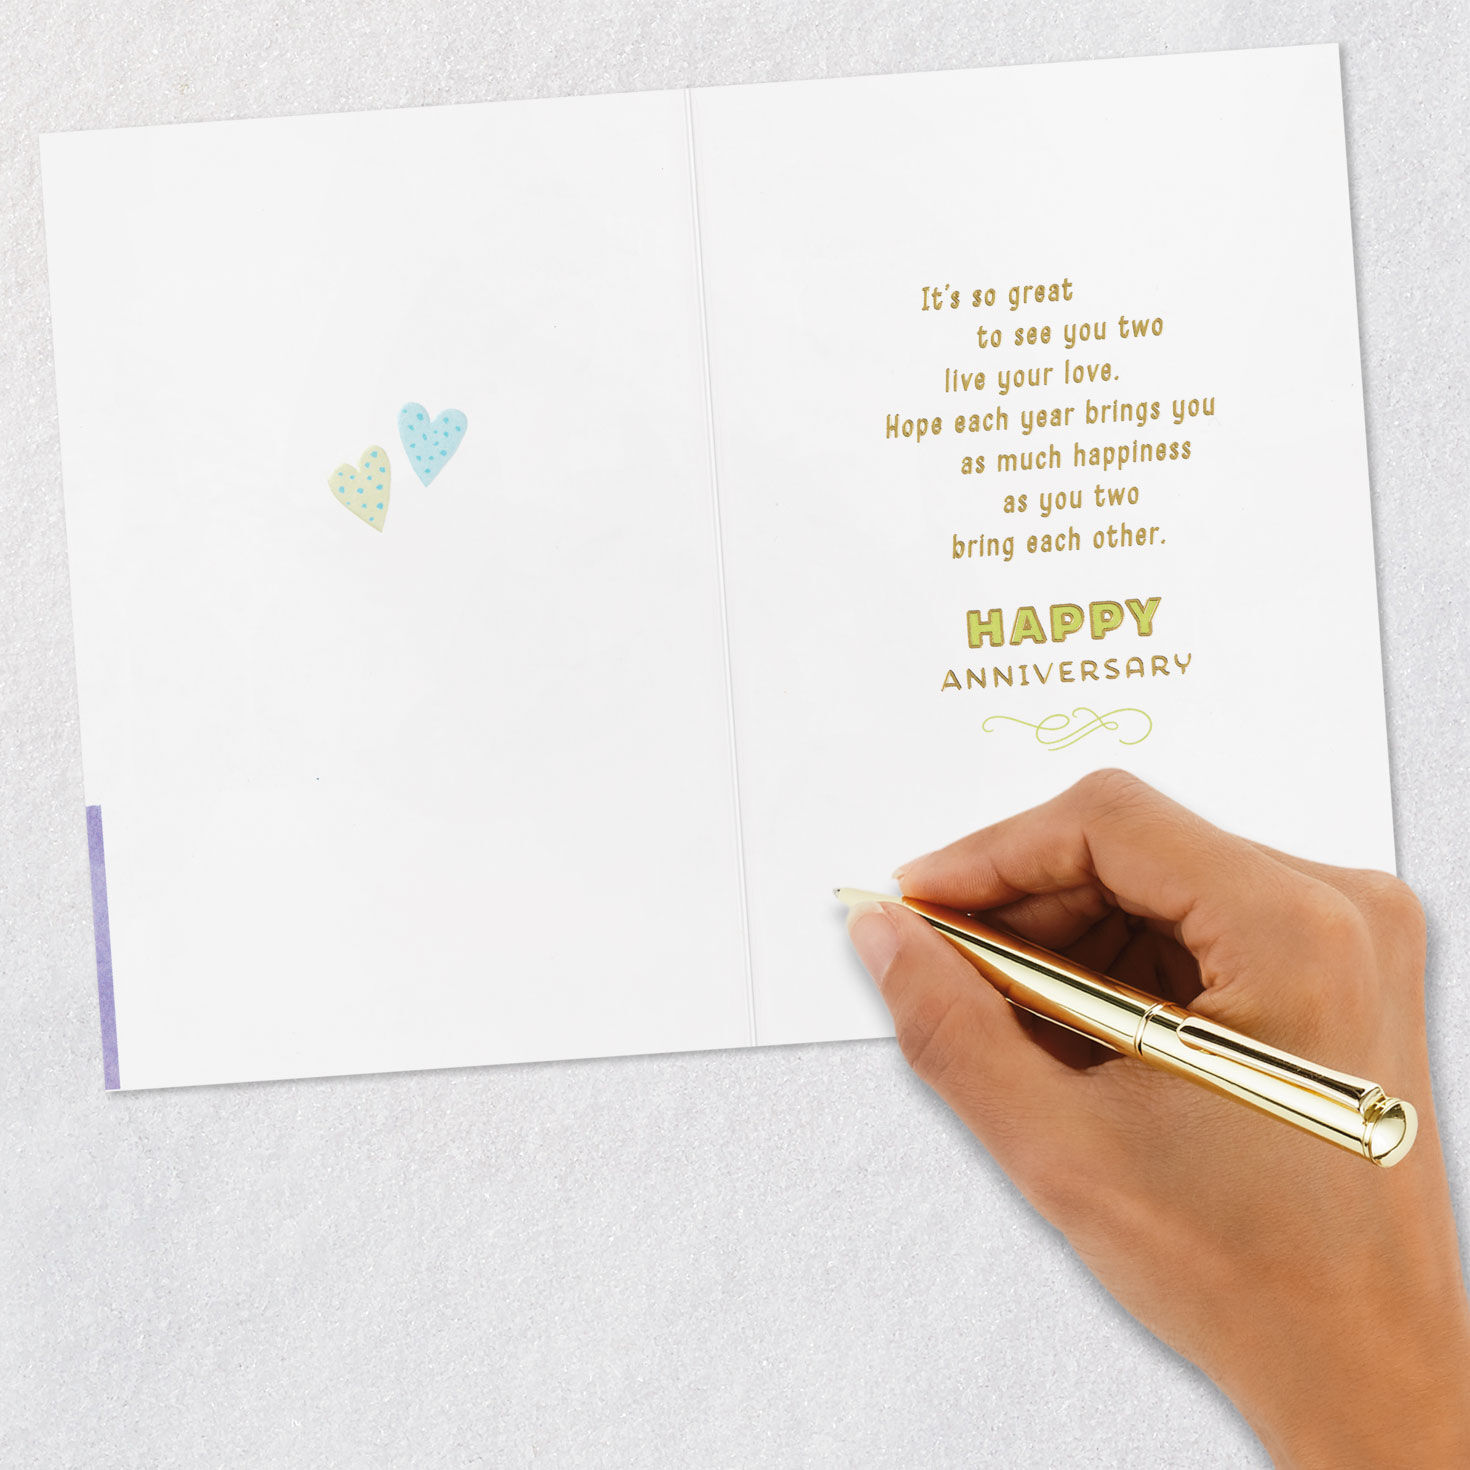 It's so great
to see you two
live your love.
Hope each year brings you
as much happiness
as you two
bring each other.
HAPPY
ANNIVERSARY